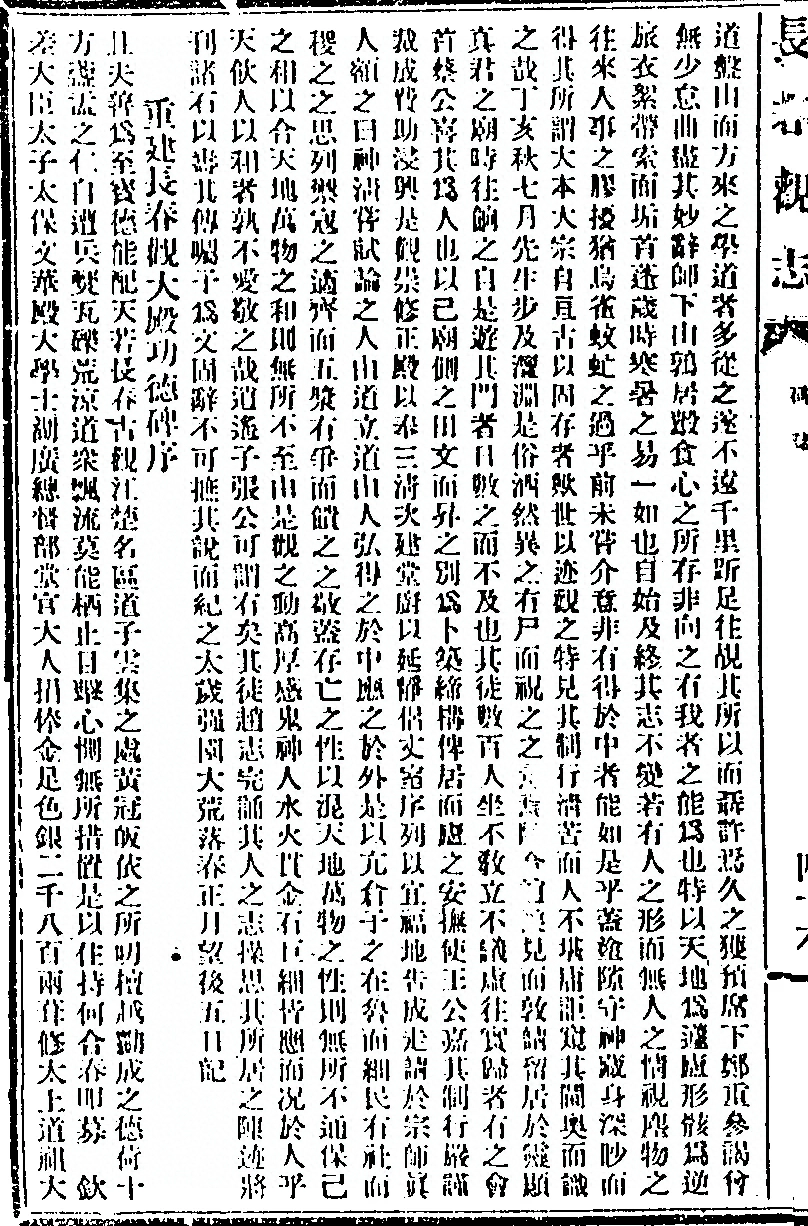 長春觀志
道盤山而方來之學道者多從之遂不遠千里趼足往覘其所以而聶許焉久之獲預席下鄭重參謁付
無少怠曲盡其妙辭師下山鶉居鷇食心之所存非向之有我者之能爲也特以天地爲蘧廬形骸爲逆
旅衣絮帶索而垢首迷歲時寒暑之易一如也自始及終其志不變若有人之形而無人之情視與物之
往來人事之膠擾猶鳥雀蚊虻之過乎前未嘗介意非有得於中者能如是乎蓋塗隙守神藏身深眇而
得其所謂大本大宗自亙古以固存者歟世以迹觀之特見其制行清苦而人不堪庸詎窺其閫奧而識
之哉丁亥秋七月先生步及澶淵是俗洒然異之有尸而祝之之 見而敦請留居於靈顯
真君之廟時往餉之自是遊其門者日數之而不及也其徒數百人坐不敎立不議虛往實歸者有之會
首蔡公喜其爲人也以己廟側之田文而昇之別爲卜築締構俾居而廬之安撫使王公嘉其制行嚴謹
裁成贊助浸興是觀崇修正殿以奉三清次建堂廚以延靜侶丈室序列以宜福地告成走請於宗師眞
人額之曰神清嘗試論之人由道立道由人弘得之於中應之於外是以亢倉子之在魯而細民有社而
稷之之思列禦寇之適齊而五漿有爭而饋之之敬蓋存亡之性以混天地萬物之性則無所不通保己
之和以合天地萬物之和則無所不至由是觀之動高厚感鬼神人水火貫金石巨細皆應而况於人乎
天佽人以和者孰不愛敬之哉逍遙子張公可謂有矣其徒趙志完誦其人之志操思其所居之陳迹將
刊諸石以壽其傳囑予爲文固辭不可摭其說而紀之太歲强圉大荒落春正月望後五日記
重建長春觀大殿功德碑序
且夫善爲至寶德能配天若長春古觀江楚名區道子雲集之處黃冠皈依之所叨檀越勷成之德荷十
方盞盂之仁自遭兵燹瓦礫荒涼道衆飄流莫能栖止目擊心惻無所措置是以住持何合春叩募 欽
差大臣太子太保文華殿大學士湖廣總督部堂官大人捐俸金足色銀二千八百兩莋修太上道祖大